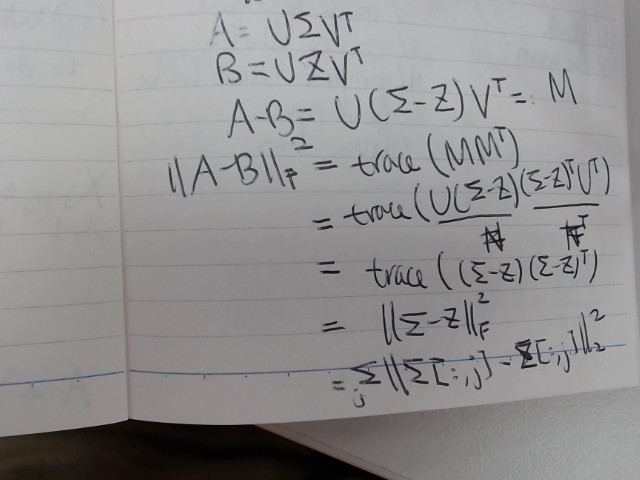 A = UΣVᵀ
B = UZVᵀ
A-B = U(Σ-Z)Vᵀ =: M
||A-B||_F² = trace(MMᵀ)
= trace(U(Σ-Z)(Σ-Z)ᵀUᵀ)
= trace((Σ-Z)(Σ-Z)ᵀ)
= ||Σ-Z||_F²
= Σ_j ||Σ[:,j] - Z[:,j]||_2²